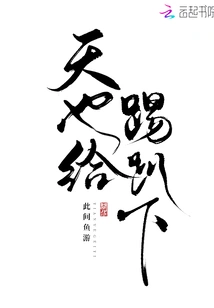 云起书院
天也给
踢趴下
此间鱼游